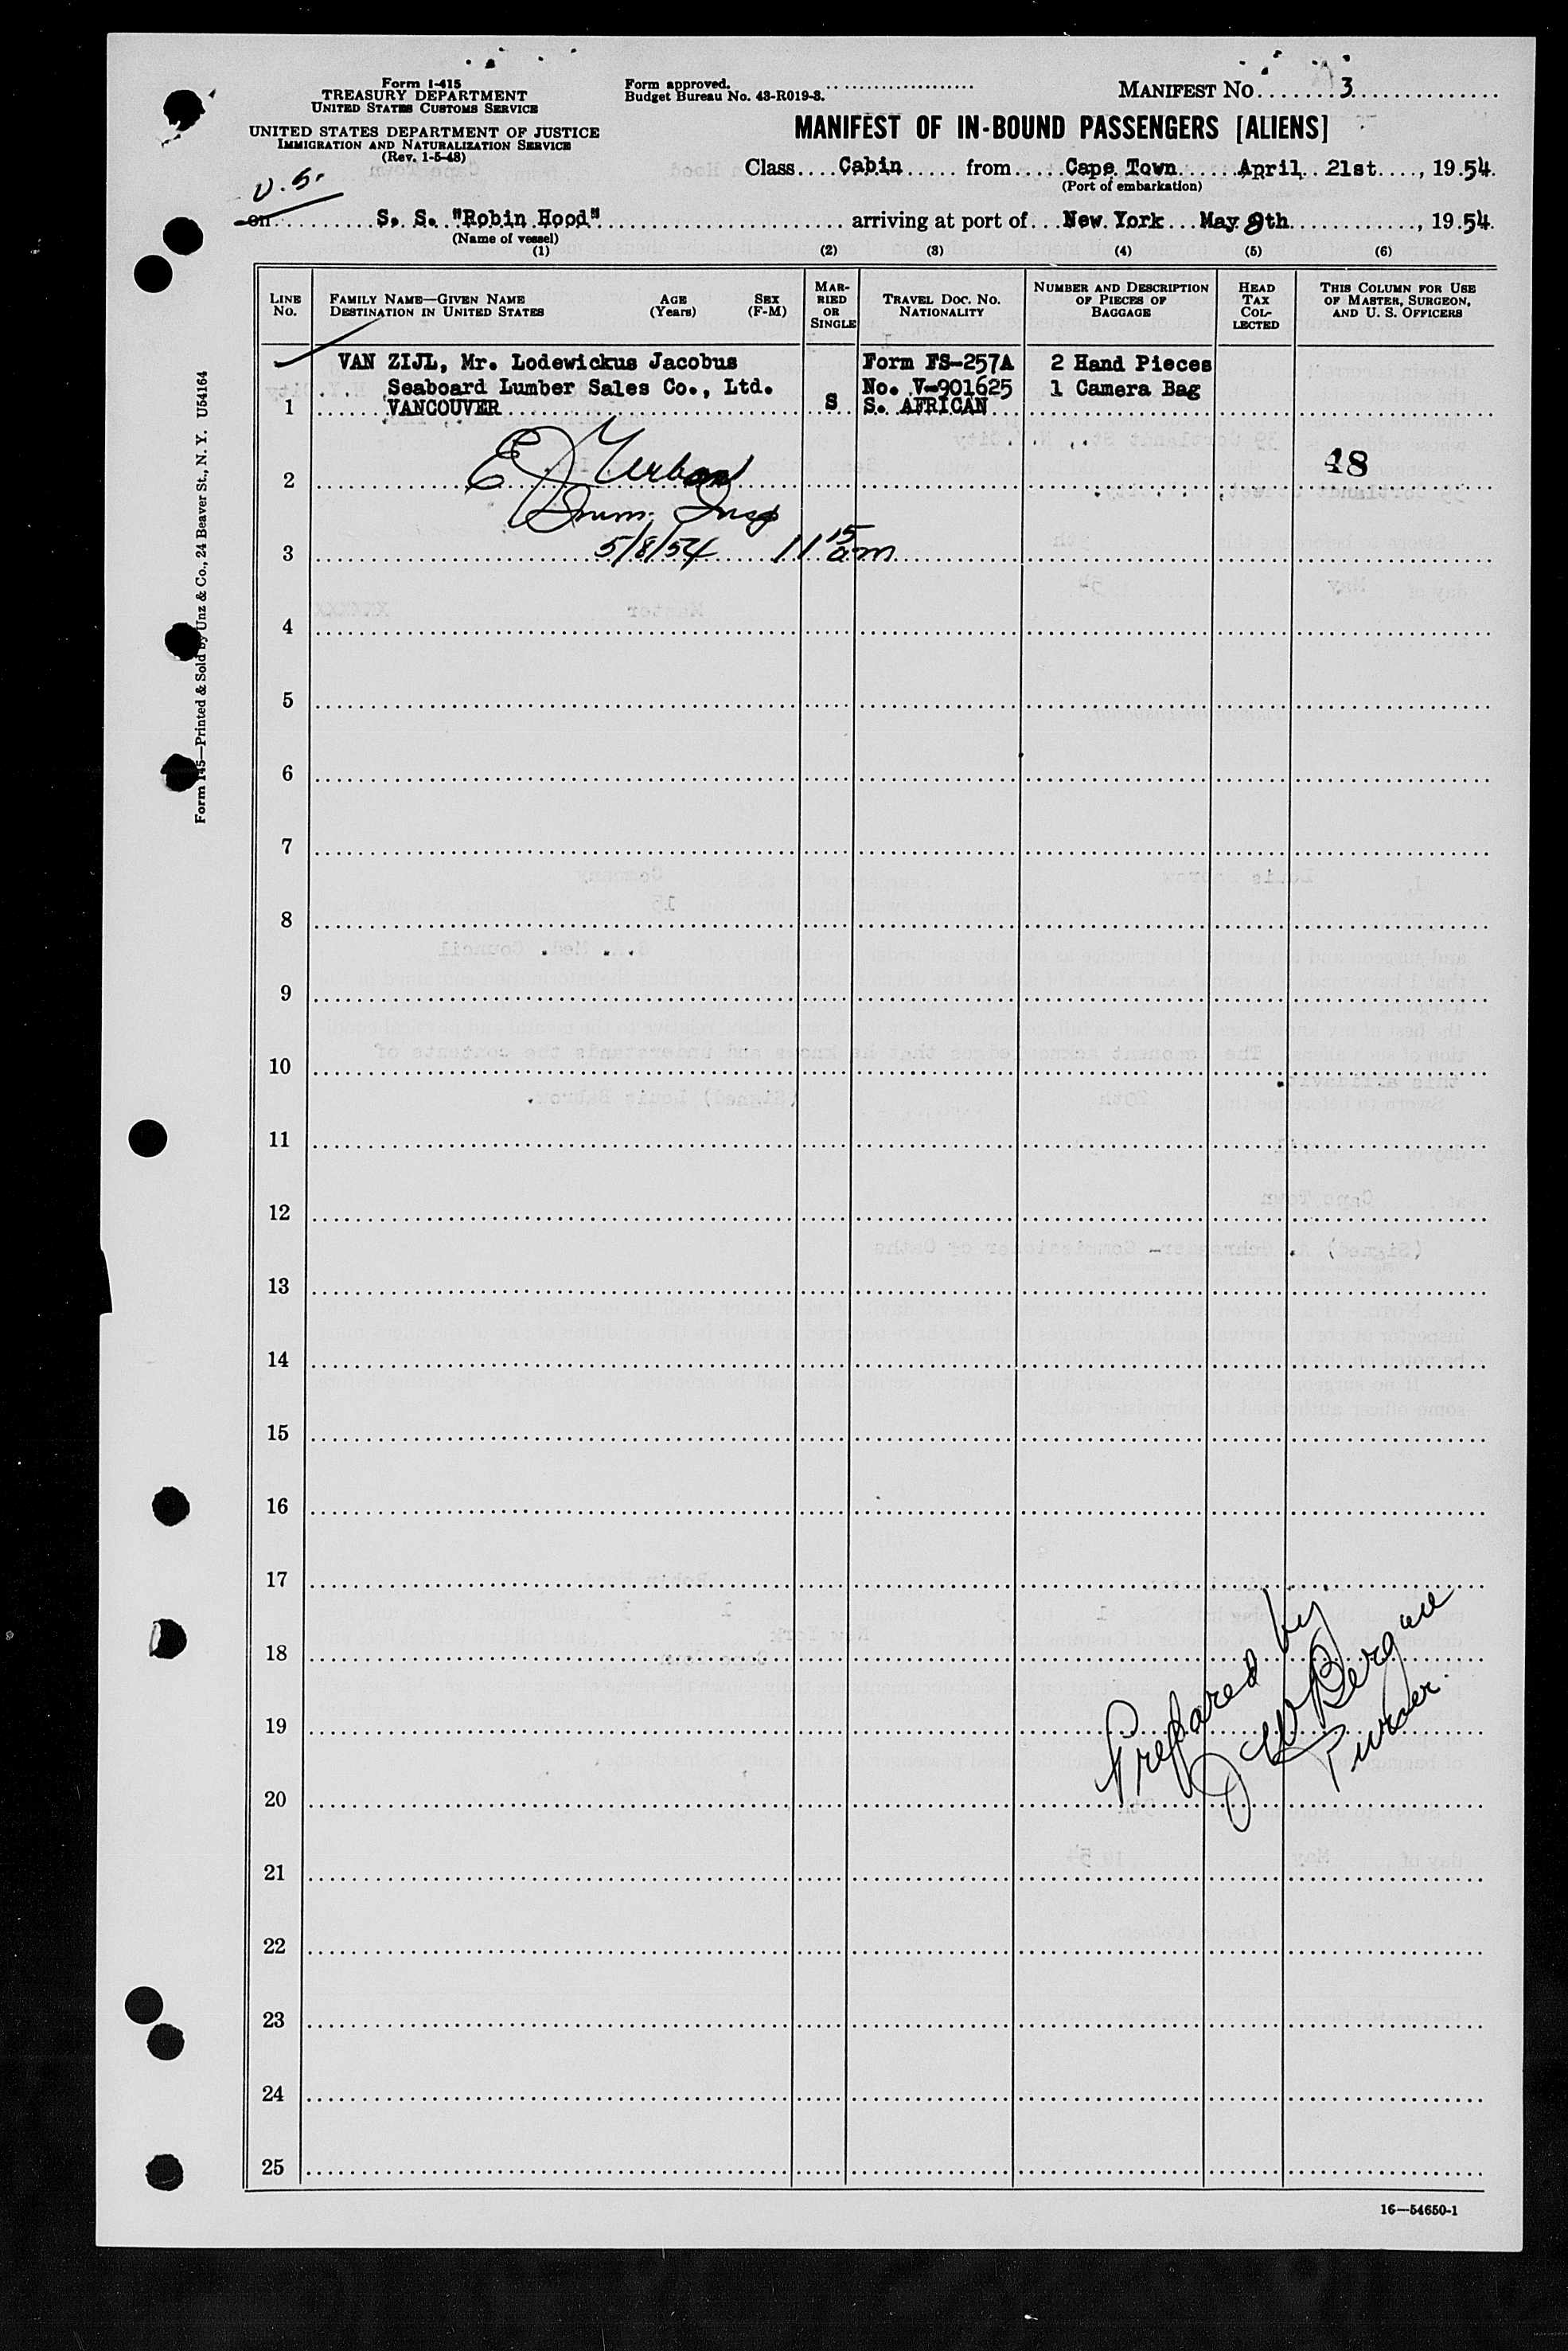 Form I-415
TREASURY DEPARTMENT
UNITED STATES CUSTOMS SERVICE
UNITED STATES DEPARTMENT OF JUSTICE
IMMIGRATION AND NATURALIZATION SERVICE
(Rev. 1-5-48)
Form approved.
Budget Bureau No. 43-R019-3.
MANIFEST NO. 3
MANIFEST OF IN-BOUND PASSENGERS [ALIENS]
Class Cabin from Cape Town April 21st, 1954.
(Port of embarkation)
on S. S. "Robin Hood" arriving at port of New York May 8th, 1954.
(Name of vessel)
(1) (2) (3) (4) (5) (6)
LINE NO.
FAMILY NAME—GIVEN NAME AGE (Years) SEX (F-M)
DESTINATION IN UNITED STATES
MARRIED OR SINGLE
TRAVEL DOC. NO. NATIONALITY
NUMBER AND DESCRIPTION OF PIECES OF BAGGAGE
HEAD TAX COLLECTED
THIS COLUMN FOR USE OF MASTER, SURGEON, AND U. S. OFFICERS
VAN ZIJL, Mr. Lodewickus Jacobus Form FS-257A 2 Hand Pieces
Seaboard Lumber Sales Co., Ltd. No. V-901625 1 Camera Bag
1 VANCOUVER S S. AFRICAN
2 E J Urban 48
Imm. Insp
3 5/8/54 11 15 am
4
5
6
7
8
9
10
11
12
13
14
15
16
17
18
19
20
21
22
23
24
25
Prepared by
Purser.
Form 145—Printed & Sold by Unz & Co., 24 Beaver St., N. Y. U54164
16—54650-1